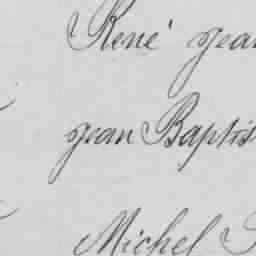 René Jean
Jean Baptis
Michel